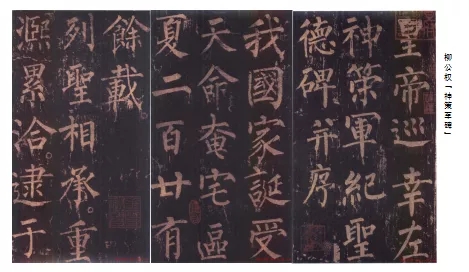 柳公权「神策军碑」
皇帝巡幸左
神策軍紀聖
德碑并序
我國家誕受
天命奄宅區
夏二百廿有
餘載
列聖相承重
熙累洽逮于